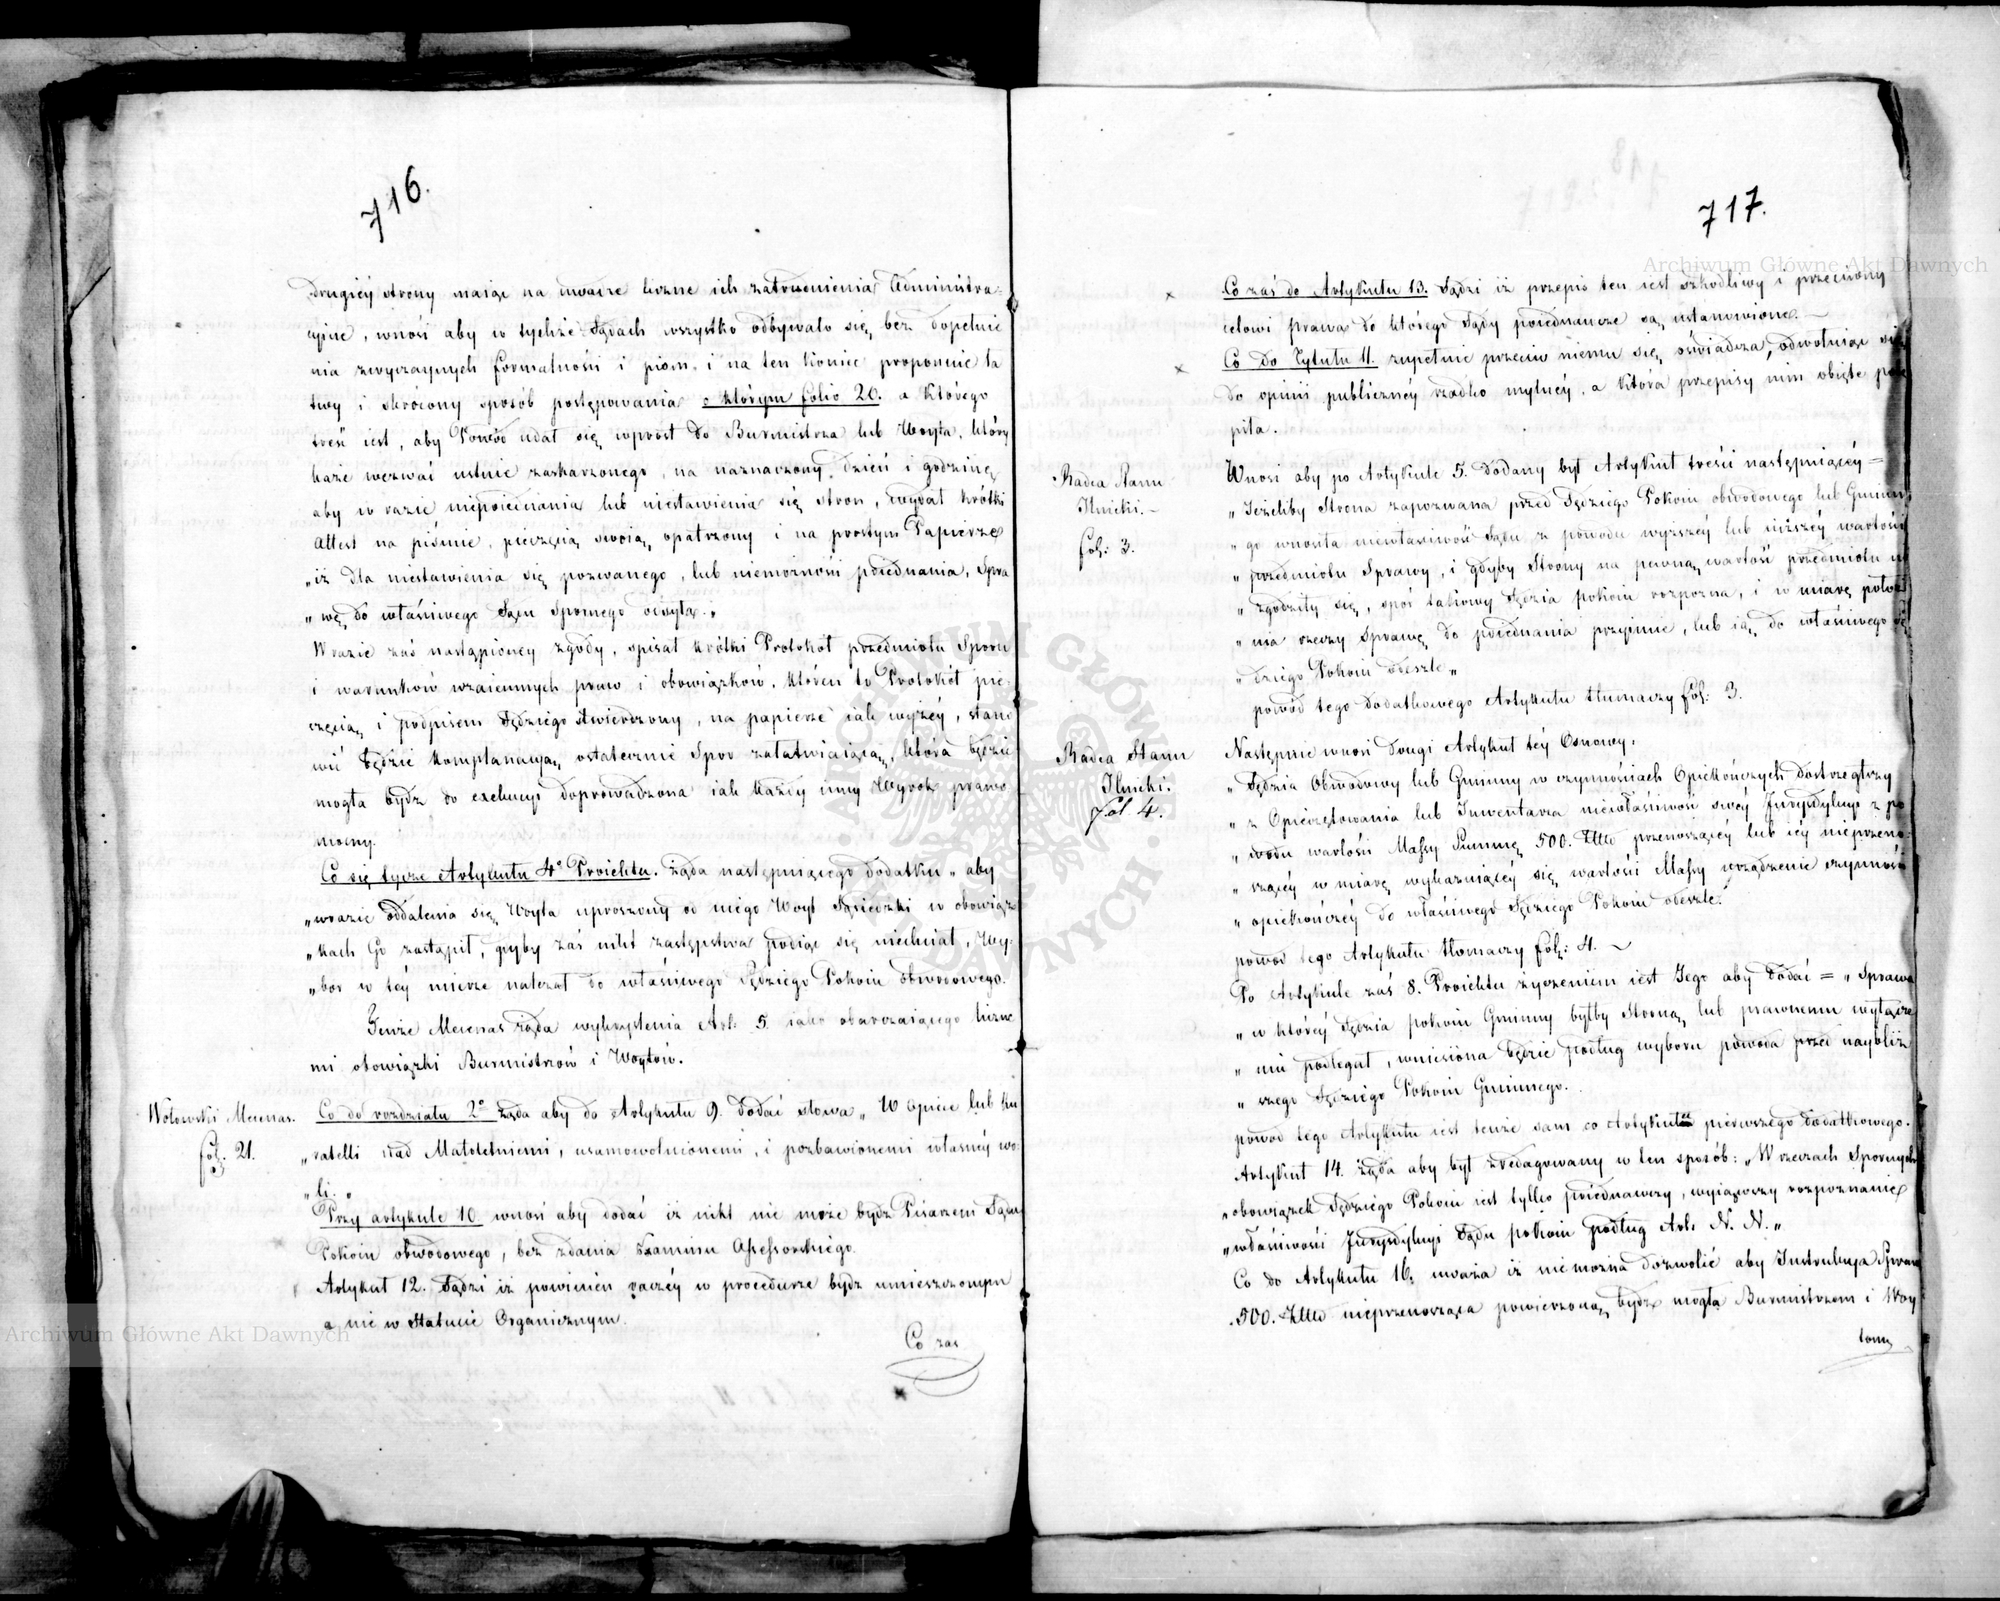 716.
drugiéy strony maiąc na uwadze liczne ich zatrudnienia Administra-
cyine, wnosi aby w tychże Sądach wszystko odbywało się bez dopełnie
nia zwyczaynych formalności i pism, i na ten koniec proponuie ła
twy i skrócony sposób postępowania o którym folio 20. a którego
treść iest, aby Powód udał się wprost do Burmistrza lub Woyta, który
każe wezwać ustnie zaskarżonego, na naznaczony dzień i godzinę
aby w razie niepoiednania lub niestawienia się stron, wydał krótki
Attest na piśmie, pieczęcią swoią opatrzony i na prostym Papierze
„iż dla niestawienia się pozwanego, lub niemożności poiednania, Spra
„wę do właściwego Sądu Spornego odsyła.„
W razie zaś nastąpionéy zgody, spisał krótki Protokół przedmiotu Sporu
i warunków wzaiemnych praw i obowiązków, któren to Protokół pie-
częcią i podpisem Sędziego stwierdzony, na papierze iak wyżéy, stano
wić będzie komplanacyą ostatecznie Spór załatwiaiącą, która będzie
mogła bydź do exekucyi doprowadzona iak każdy inny Wyrok prawo
mocny.
Co się tycze Artykułu 4º Proiektu. żąda następuiącego dodatku „aby
„wrazie oddalenia się Woyta uproszony od niego Woyt Sąsiedzki w obowiąz
„kach Go zastąpił, gdyby zaś nikt zastępstwa podiąć się niechciał, Wy-
„bór w téy mierze należał do właściwego Sędziego Pokoiu obwodowego.
Tenże Mecenas żąda wykryślenia Art. 5. iako obarczaiącego liczne
mi obowiązki Burmistrzów i Woytów.
Wołowski Mecenas.
fol. 21.
Co do rozdziału 2º żąda aby do Artykułu 9. dodać słowa „W Opiece lub Ku
„ratelli nad Małoletniemi, usamowolnionemi, i pozbawionemi własnéy wo-
„li.„
Przy artykule 10. wnosi aby dodać iż nikt nie może bydź Pisarzem Sądu
Pokoiu obwodowego, bez zdania Examinu Assessorskiego.
Artykuł 12. Sądzi iż powinien raczéy w procedurze bydź umieszczonym
a nie w Statucie Organicznym.
Co zaś
717.
Co zaś do Artykułu 13. Sądzi iż przepis ten iest szkodliwy i przeciwny
celowi prawa do którego Sądy poiednawcze są ustanowione.
Co do Tytułu 11. zupełnie przeciw niemu się oświadcza, odwołuiąc się
do opinii publicznéy rzadko mylnéy, a która przepisy nim obięte potę
piła.
Radca Stanu
Ilnicki.
fol: 3.
Wnosi aby po Artykule 5. dodany był Artykuł treści następuiącéy =
„Jeżeliby Strona zapozwana przed Sędziego Pokoiu obwodowego lub Gminne
„go wnosiła niewłaściwość Sądu z powodu wyższéy lub niższéy wartości
„przedmiotu Sprawy, i gdyby Strony na pewną wartość przedmiotu nie
„zgodziły się, spór takowy Sędzia pokoiu rozpozna, i w miarę położe
„nia rzeczy Sprawę do poiednania przyimie, lub ią do właściwego Sę
„dziego Pokoiu odeszle„
powód tego dodatkowego Artykułu tłumaczy fol: 3.
Radca Stanu
Ilnicki.
fol 4.
Następnie wnosi drugi Artykuł téy Osnowy:
„Sędzia Obwodowy lub Gminny w czynnościach Opiekończych dostrzegłszy
„z Opieczętowania lub Inwentarza niewłaściwość swéy Jurysdykcyi z po
„wodu wartości Massy Summę 500. Złł. przenoszącéy lub iéy nieprzeno-
„szącéy w miarę wykazuiącéy się wartości Massy urządzenie czynności
„opiekończéy do właściwego Sędziego Pokoiu odeszle.
powód tego Artykułu tłomaczy fol: 4.
Po Artykule zaś 8. Proiektu życzeniem iest Jego aby dodać = „Sprawa
„w któréy Sędzia pokoiu Gminny byłby Stroną lub prawnemu wyłącze
„niu podlegał, wniesiona będzie podług wyboru powoda przed naybliż
„szego Sędziego Pokoiu Gminnego.
powód tego Artykułu iest tenże sam co Artykułu pierwszego dodatkowego.
Artykuł 14. żąda aby był zredagowany w ten sposób: „W rzeczach Spornych
„obowiązek Sędziego Pokoiu iest tylko poiednawczy, wyiąwszy rozpoznanie
„właściwości Jurysdykcyi Sądu pokoiu podług Art. N. N.„
Co do Artykułu 16. uważa iż nie można dozwolić aby Instrukcya Spraw
500. Złł. nieprzenosząca powierzoną bydź mogła Burmistrzom i Woy
tom,
Archiwum Główne Akt Dawnych
Archiwum Główne Akt Dawnych
ARCHIWUM GŁÓWNE AKT DAWNYCH